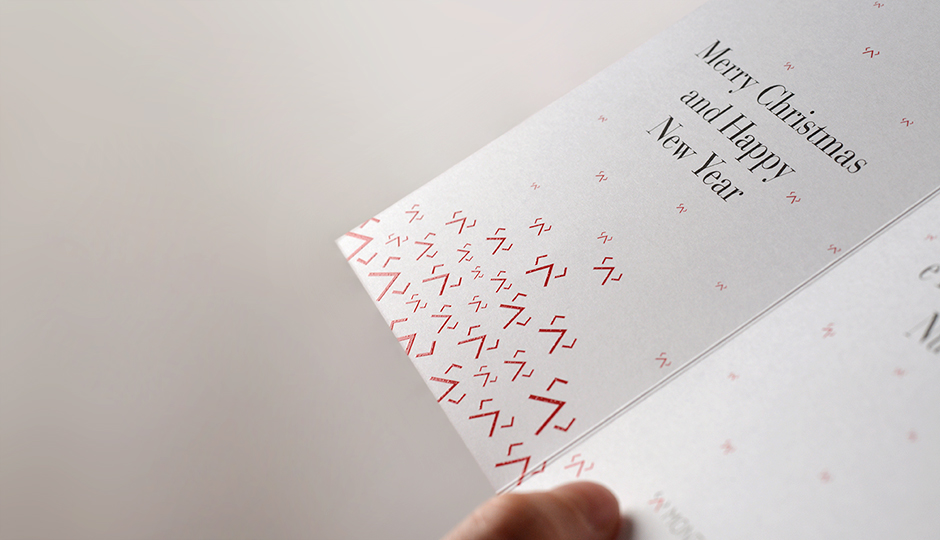 Merry Christmas
and Happy
New Year